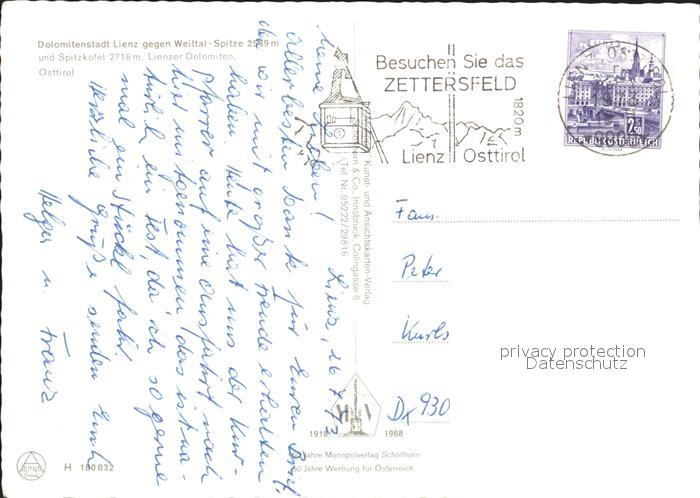 Dolomitenstadt Lienz gegen Weittal-Spitze 2539 m
und Spitzkofel 2718 m, Lienzer Dolomiten.
Osttirol
Besuchen Sie das
ZETTERSFELD
1820m
Lienz Osttirol
2.50
REPUBLIK ÖSTERREICH
Kunst- und Ansichtskarten-Verlag
& Co. Innsbruck, Colingasse 6
Tel. Nr. 05222/29816
Lienz, 26.7.73
Meine Lieben!
Allerbesten Dank für Euren Brief,
den wir mit großer Freude erhalten
haben. Heute hat uns der Kur-
Pfarrer auf eine Ausfahrt nach
mitgenommen das ist na-
türlich ein Fest, da ich so gerne
mal ein Stückl fahr.
Herzliche Grüße senden Euch
Helga u. Franz
Fam.
Peter
Karls
privacy protection
Datenschutz
D 930
1918 1968
Jahre Monopolverlag Schöllhorn
50 Jahre Werbung für Österreich
H 180 032